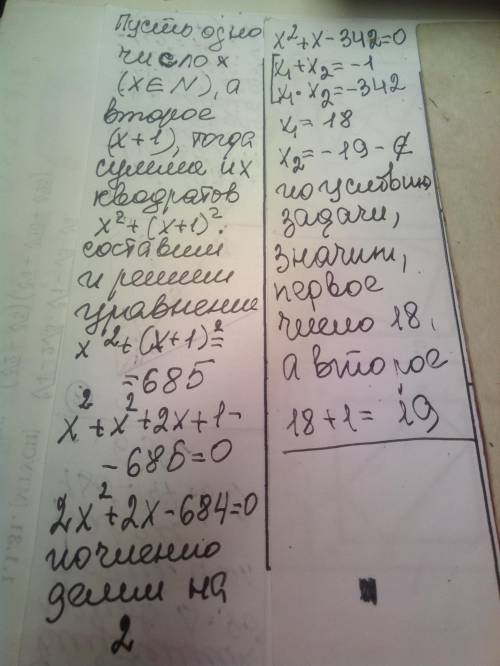 Пусть одно
число x
(x∈N), а
второе
(x+1), тогда
сумма их
квадратов
x²+(x+1)².
составим
и решим
уравнение
x²+(x+1)²=
=685
x²+x²+2x+1-
-685=0
2x²+2x-684=0
почленно
делим на
2
x²+x-342=0
[x₁+x₂=-1
[x₁·x₂=-342
x₁=18
x₂=-19-∉
по условию
задачи,
значит,
первое
число 18,
а второе
18+1=19